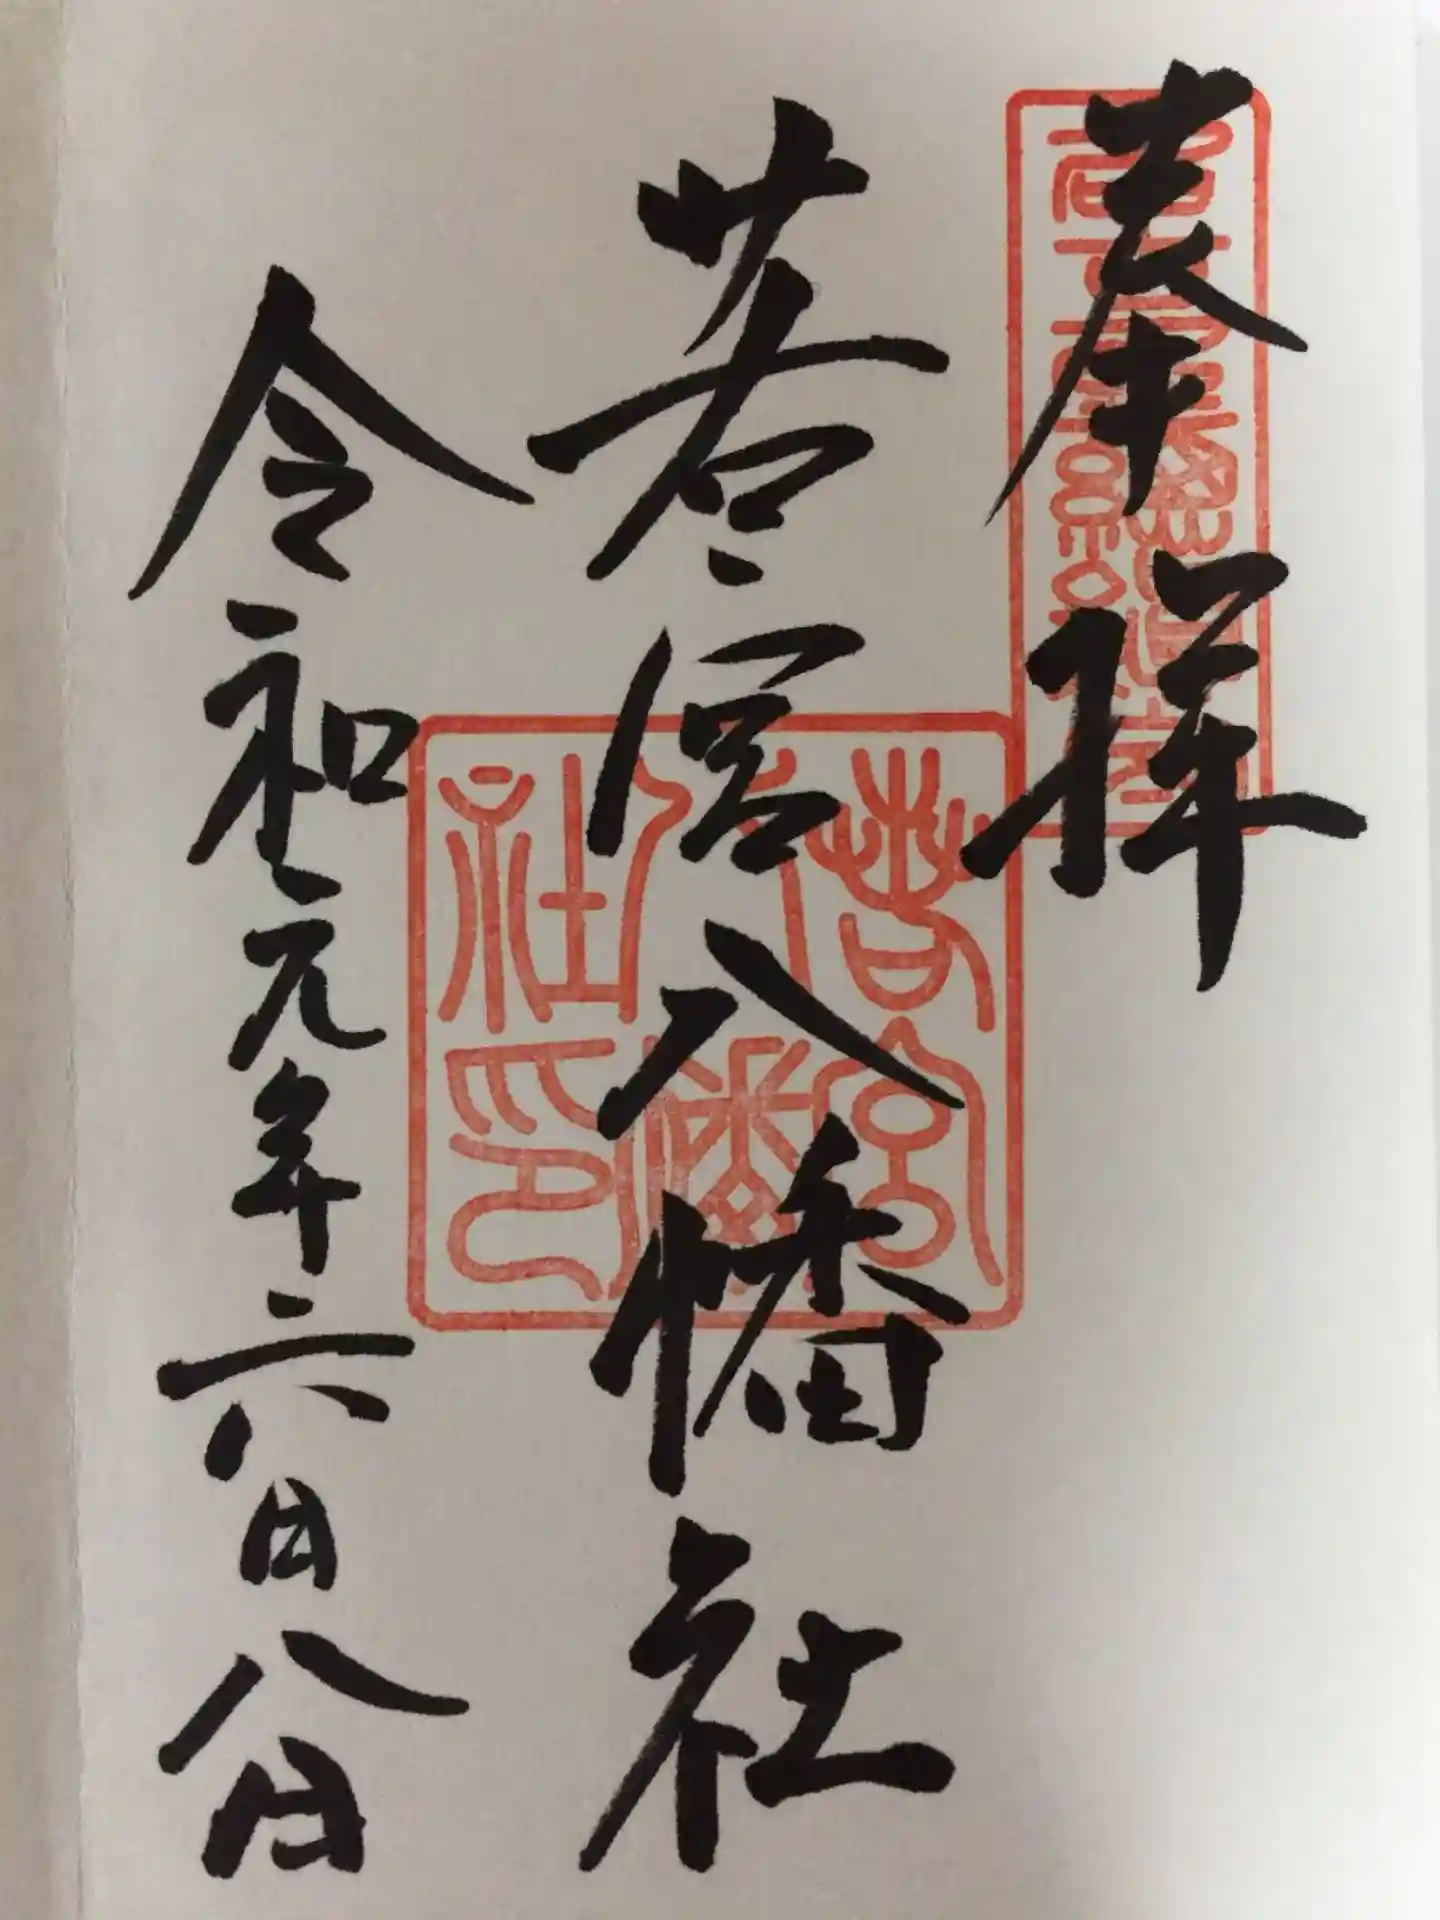 奉拝
若宮八幡社
令和元年六月八日
若宮八幡社印